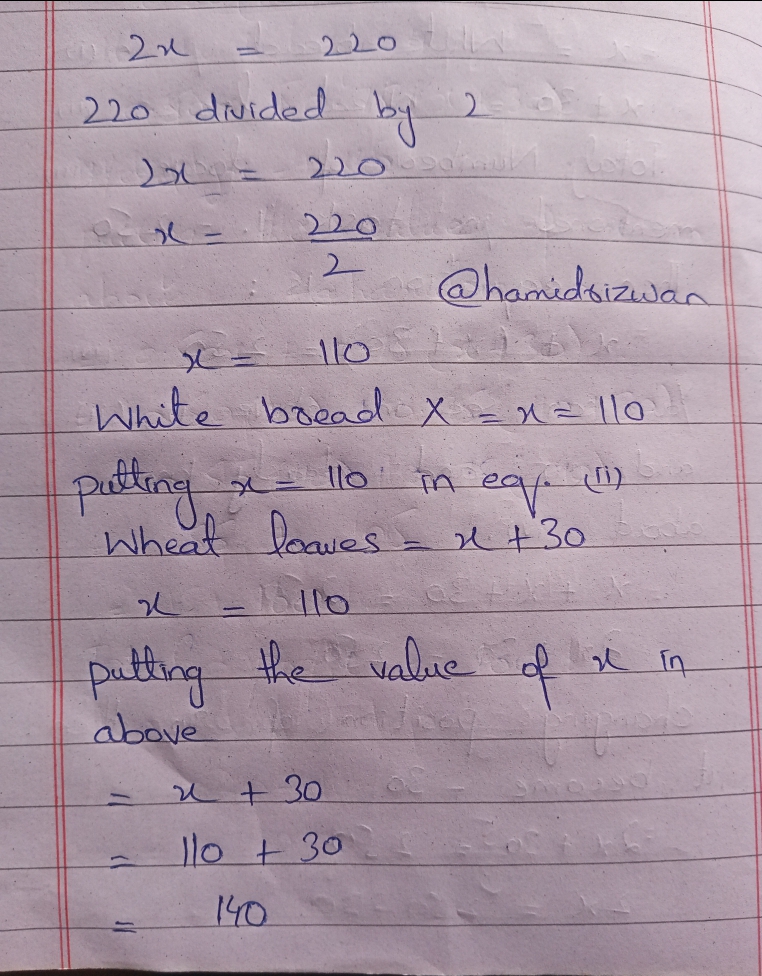 2x = 220
220 divided by 2
2x = 220
x = 220/2
@hamidrizwan
x = 110
White bread X = x = 110
putting x = 110 in eq. (ii)
Wheat loaves = x + 30
x = 110
putting the value of x in
above
= x + 30
= 110 + 30
= 140